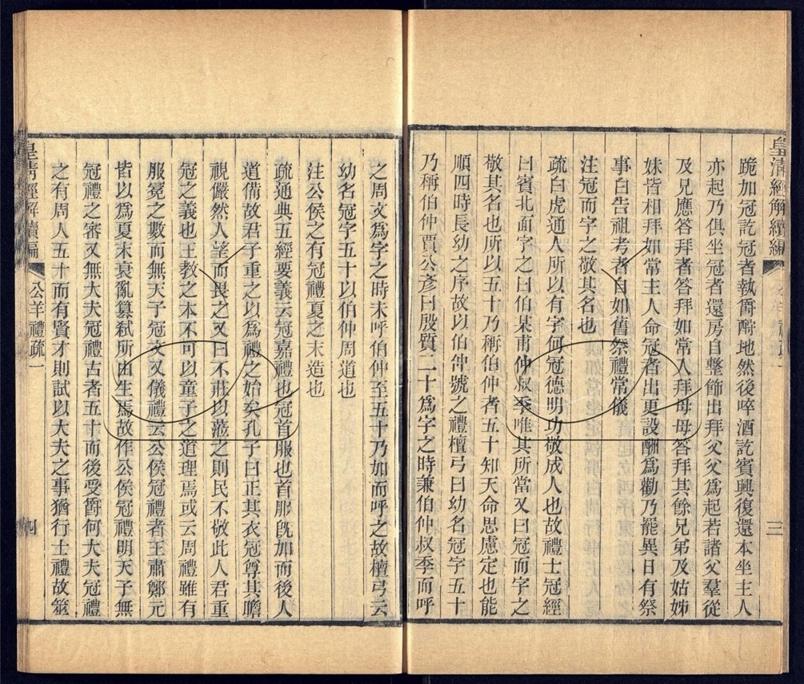 皇清經解續編
公羊禮疏一
三
跪加冠訖冠者執爵酹地然後啐酒訖賓興復還本坐主人
亦起乃俱坐冠者還房自整飾出拜父父爲起若諸父羣從
及兄應答拜者答拜如常人拜母母答拜其餘兄弟及姑姊
妹皆相拜如常主人命冠者出更設酬爲勸乃罷異日有祭
事白告祖考者自如舊祭禮常儀
注冠而字之敬其名也
疏白虎通人所以有字何冠德明功敬成人也故禮士冠經
曰賓北面字之曰伯某甫仲叔季唯其所當又曰冠而字之
敬其名也所以五十乃稱伯仲者五十知天命思慮定也能
順四時長幼之序故以伯仲號之禮檀弓曰幼名冠字五十
乃稱伯仲賈公彥曰殷質二十爲字之時兼伯仲叔季而呼
之周文爲字之時未呼伯仲至五十乃加而呼之故檀弓云
幼名冠字五十以伯仲周道也
注公侯之有冠禮夏之末造也
疏通典五經要義云冠嘉禮也冠首服也首服旣加而後人
道備故君子重之以爲禮之始矣孔子曰正其衣冠尊其瞻
視儼然人望而畏之又曰不莊以蒞之則民不敬此人君重
冠之義也王教之本不可以童子之道理焉或云周禮雖有
服冕之數而無天子冠文又儀禮云公侯冠禮者王肅鄭元
皆以爲夏末衰亂篡弒所由生焉故作公侯冠禮明天子無
冠禮之審又無大夫冠禮古者五十而後受爵何大夫冠禮
之有周人五十而有賢才則試以大夫之事猶行士禮故筮
皇清經解續編
公羊禮疏一
四